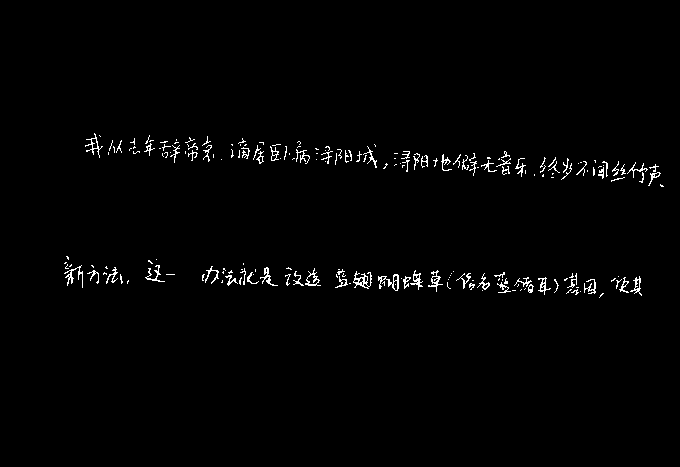 我从去年辞帝京.谪居卧病浔阳城,浔阳地僻无音乐.终岁不闻丝竹声
新方法.这一 办法就是改造蓝翅蝴蝶草(俗名蓝猪耳)基因,使其